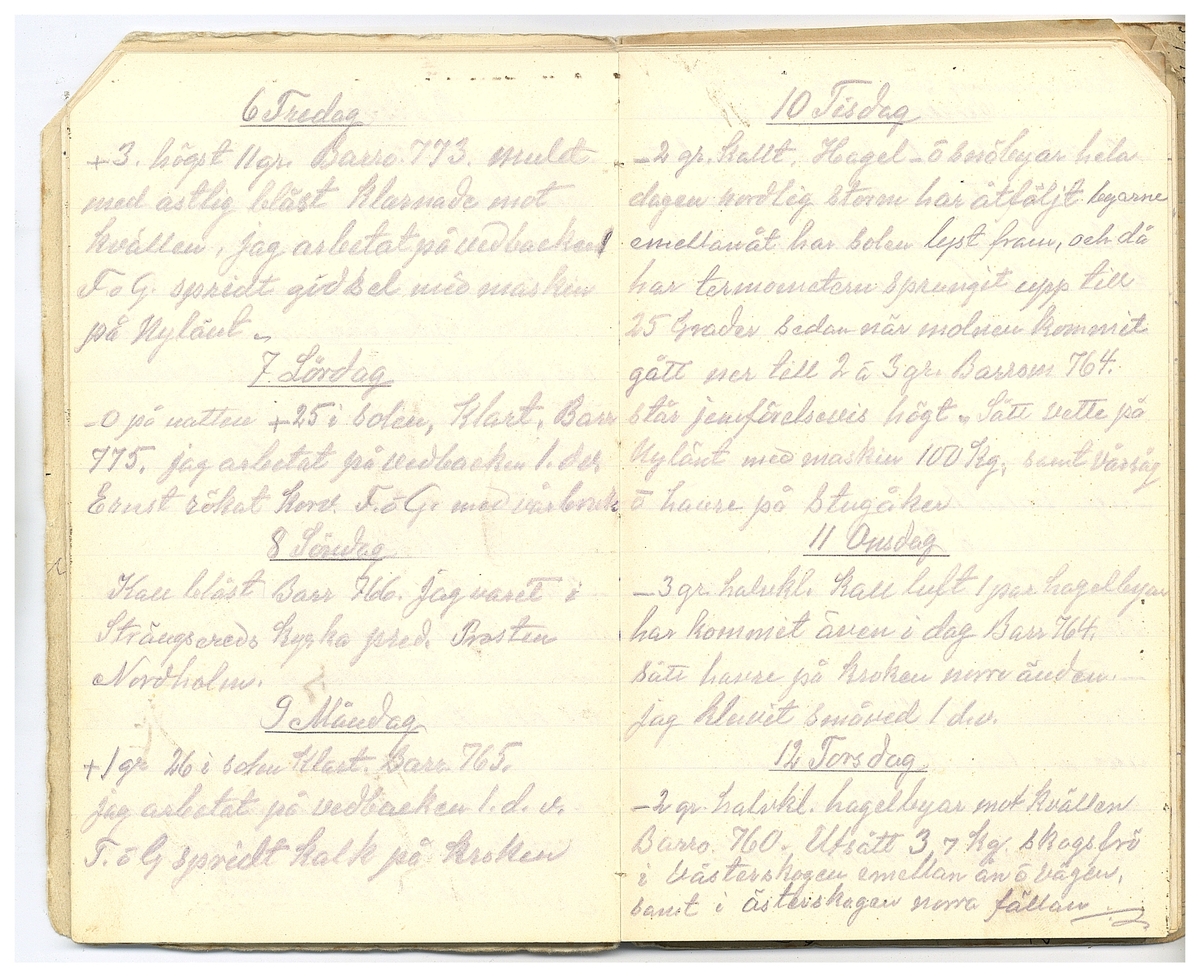 6 Fredag
+3. högst 11 gr. Barro. 773. mulet
med ostlig blåst klarnade mot
kvällen, jag arbetat på vedbacken
F. o G. spridt gödsel med maskin
på Nylänt.
7 Lördag
-0 på natten +25 i solen, Klart, Barr
775. jag arbetat på vedbacken 1. dv.
Ernst rökat korv. F. o G. med vårbruk
8 Söndag
Kall blåst Barr 766. jag varit i
Strängsereds kyrka pred. Prosten
Nordholm.
9 Måndag
+1 gr 26 i solen Klart. Barr. 765.
jag arbetat på vedbacken 1. d. v.
F. o G spridt kalk på kroken
10 Tisdag
-2 gr. kallt. Hagel- ō snöbyar hela
dagen nordlig storm har åtföljt byarne
emellanåt har solen lyst fram, och då
har termometern sprungit upp till
25 Grader sedan när molnen kommit
gått ner till 2 à 3 gr. Barrom 764.
står jemförelsevis högt. Sått vette på
Nylänt med maskin 100 Kg. samt vårsäg
ō havre på Stugåker
11 Onsdag
-3 gr. halvkl. Kall luft 1 par hagelbyar
har kommit även i dag Barr 764.
sått havre på kroken norra änden.
jag kluvit småved 1 d.v.
12 Torsdag
-2 gr. halvkl. hagelbyar mot kvällen
Barro. 760. Utsått 3,7 Kg. skogsfrö
i Västerskogen emellan ån ō vägen,
samt i österskogen norra fällan